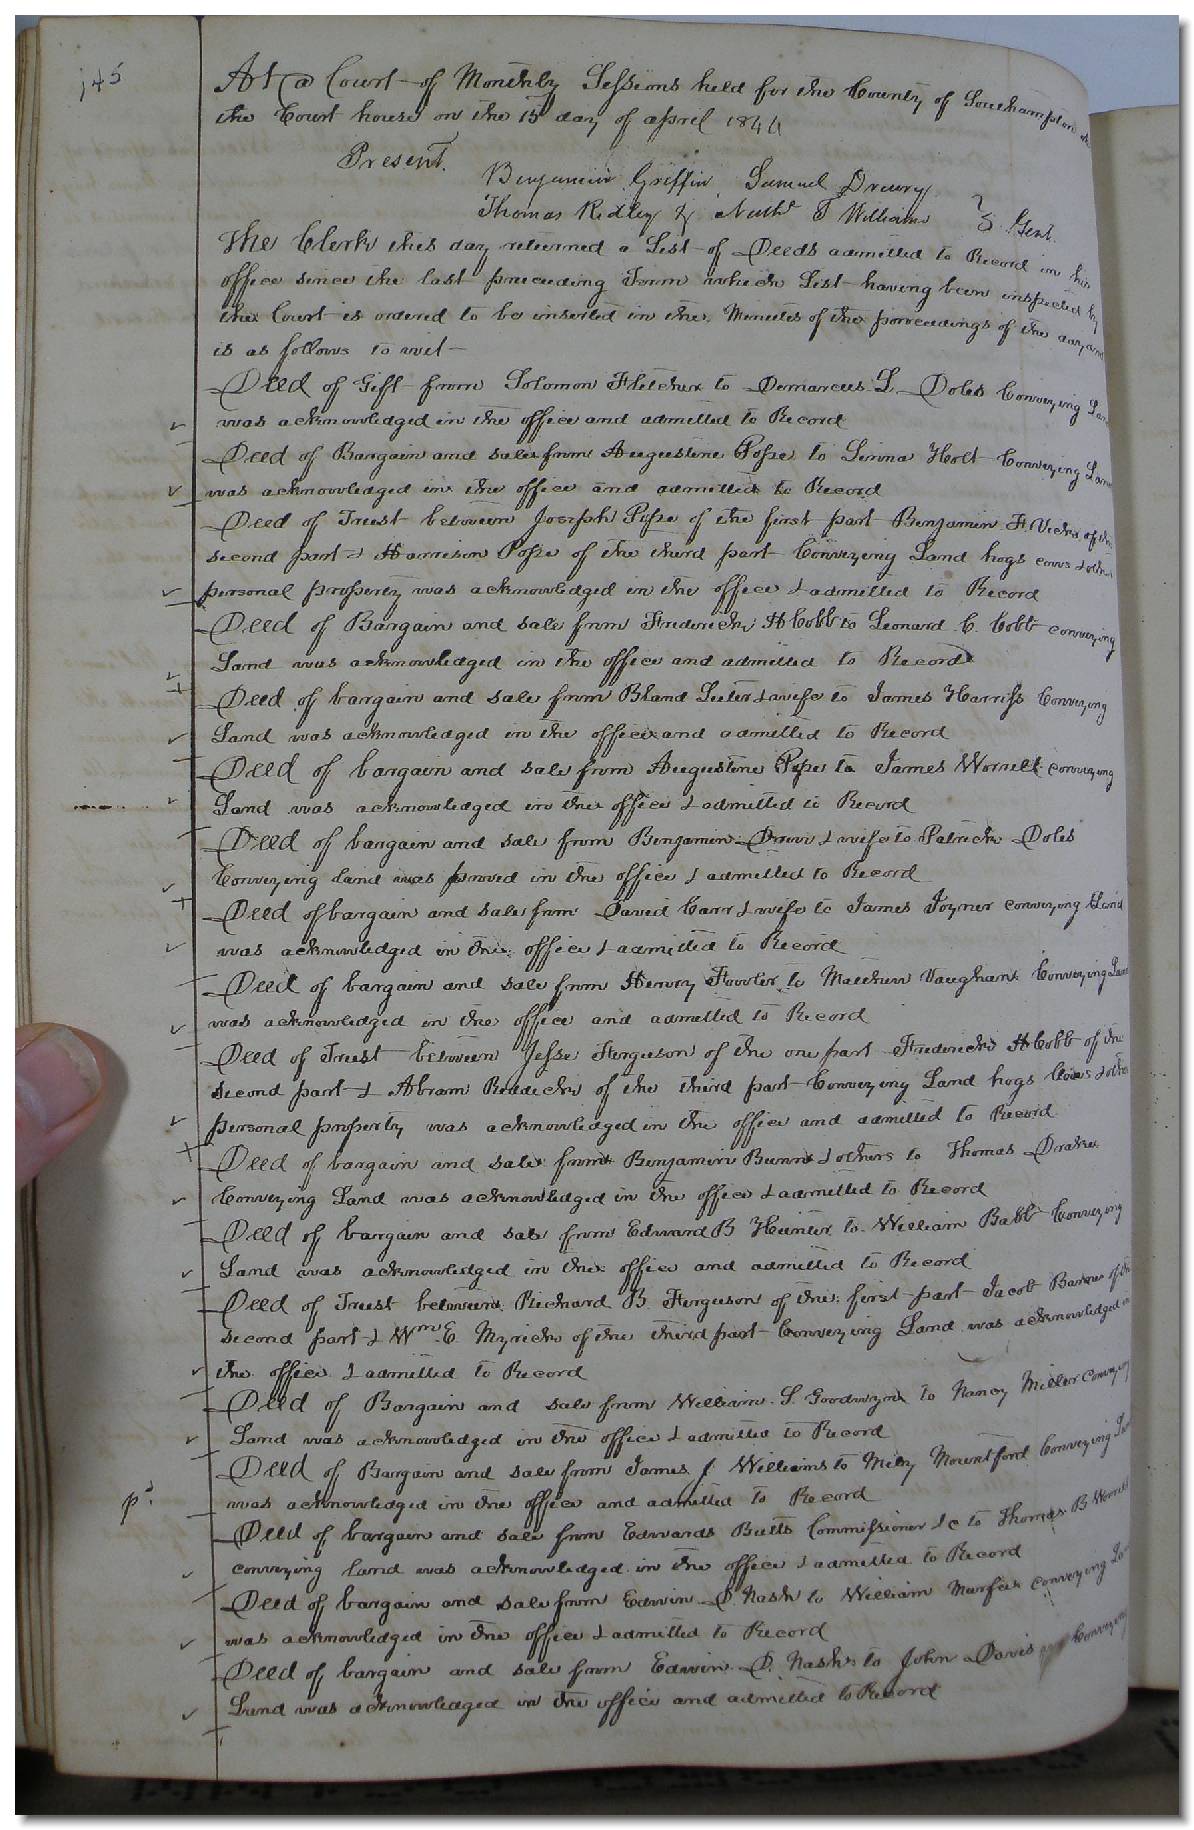 145
At a Court of Monthly Sessions held for the County of Southampton at
the Court house on the 15 day of april 1844
Present.
Benjamin Griffin, Samuel Drewry
Thomas Ridley & Nathl T Williams } Gent.
The Clerk this day returned a List of Deeds admitted to Record in his
office since the last preceeding Term which List having been inspected by
the Court is ordered to be inserted in the Minutes of the proceedings of the day and
is as follows to wit
Deed of Gift from Solomon Fletcher to Demarcus L. Doles Conveying Land
was acknowledged in the office and admitted to Record
Deed of Bargain and sale from Augustine Pope to Sirona Holt Conveying Land
was acknowledged in the office and admitted to Record
Deed of Trust between Joseph Pope of the first part Benjamin F. Vicks of the
second part & Harrison Pope of the third part Conveying Land hogs cows & other
personal property was acknowledged in the office & admitted to Record
Deed of Bargain and sale from Frederick H Cobb to Leonard C. Cobb conveying
Land was acknowledged in the office and admitted to Record
Deed of bargain and sale from Bland Lester & wife to James Harriss Conveying
Land was acknowledged in the office and admitted to Record
Deed of bargain and sale from Augustine Pope to James Worrell conveying
Land was acknowledged in the office & admitted to Record
Deed of bargain and sale from Benjamin Drew & wife to Patrick Doles
Conveying land was proved in the office & admitted to Record
Deed of bargain and sale from David Carr & wife to James Joyner conveying Land
was acknowledged in the office & admitted to Record
Deed of bargain and sale from Henry Fowler to Matthew Vaughan Conveying Land
was acknowledged in the office and admitted to Record
Deed of Trust between Jesse Ferguson of the one part Frederick H Cobb of the
second part & Abram Reddick of the third part Conveying Land hogs Cows & other
personal property was acknowledged in the office and admitted to Record
Deed of bargain and sale from Benjamin Bunn & others to Thomas Drake
Conveying Land was acknowledged in the office & admitted to Record
Deed of bargain and sale from Edward B Hunter to William Babb Conveying
Land was acknowledged in the office and admitted to Record
Deed of Trust between Richard B. Ferguson of the first part Jacob Barnes of the
second part & Wm E. Myrick of the third part Conveying Land was acknowledged in
the office & admitted to Record
Deed of Bargain and sale from William S. Goodwyn to Nancy Miller conveying
Land was acknowledged in the office & admitted to Record
Deed of Bargain and sale from James J. Williams to Mily Mountford Conveying Land
pd. was acknowledged in the office and admitted to Record
Deed of bargain and sale from Edwards Butts Commissioner &c to Thomas B Worrell
conveying land was acknowledged in the office & admitted to Record
Deed of bargain and sale from Edwin D. Nash to William Murfee conveying
was acknowledged in the office & admitted to Record
Deed of bargain and sale from Edwin D. Nash to John Davis Conveying
Land was acknowledged in the office and admitted to Record